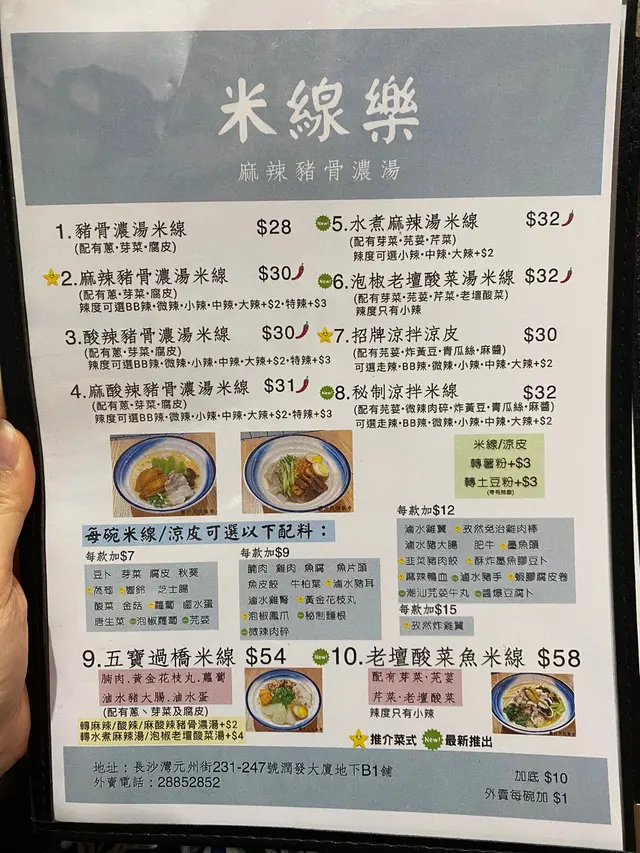 米線樂
麻辣豬骨濃湯
1.豬骨濃湯米線 $28
(配有蔥·芽菜·腐皮)
2.麻辣豬骨濃湯米線 $30
(配有蔥·芽菜·腐皮)
辣度可選BB辣·微辣·小辣·中辣·大辣+$2·特辣+$3
3.酸辣豬骨濃湯米線 $30
(配有蔥·芽菜·腐皮)
辣度可選BB辣·微辣·小辣·中辣·大辣+$2·特辣+$3
4.麻酸辣豬骨濃湯米線 $31
(配有蔥·芽菜·腐皮)
辣度可選BB辣·微辣·小辣·中辣·大辣+$2·特辣+$3
New! 5.水煮麻辣湯米線 $32
(配有芽菜·芫荽·芹菜)
辣度可選小辣·中辣·大辣+$2
New! 6.泡椒老壇酸菜湯米線 $32
(配有芽菜·芫荽·芹菜·老壇酸菜)
辣度只有小辣
7.招牌涼拌涼皮 $30
(配有芫荽·炸黃豆·青瓜絲·麻醬)
可選走辣·BB辣·微辣·小辣·中辣·大辣+$2
New! 8.秘制涼拌米線 $32
(配有芫荽·微辣肉碎·炸黃豆·青瓜絲·麻醬)
可選走辣·BB辣·微辣·小辣·中辣·大辣+$2
米線/涼皮
轉薯粉+$3
轉土豆粉+$3
每碗米線/涼皮可選以下配料：
每款加$7
豆卜 芽菜 腐皮 秋葵
茼蒿 響鈴 芝士腸
酸菜 金菇 蘿蔔 鹵水蛋
唐生菜 泡椒蘿蔔 芫荽
每款加$9
腩肉 雞肉 魚腐 魚片頭
魚皮餃 牛柏葉 滷水豬耳
滷水雞腎 黃金花枝丸
泡椒鳳爪 秘制麵根
微辣肉碎
每款加$12
滷水雞翼 孜然免治雞肉棒
滷水豬大腸 肥牛 墨魚頭
韭菜豬肉餃 酥炸墨魚膠豆卜
麻辣鴨血 滷水豬手 蝦膠腐皮卷
潮汕芫荽牛丸 醬爆豆腐卜
每款加$15
孜然炸雞翼
9.五寶過橋米線 $54
腩肉.黃金花枝丸.蘿蔔
滷水豬大腸.滷水蛋
(配有蔥、芽菜及腐皮)
轉麻辣/酸辣/麻酸辣豬骨濃湯+$2
轉水煮麻辣湯/泡椒老壇酸菜湯+$4
New! 10.老壇酸菜魚米線 $58
配有芽菜·芫荽
芹菜·老壇酸菜
辣度只有小辣
推介菜式 New! 最新推出
地址：長沙灣元州街231-247號潤發大廈地下B1舖
外賣電話：28852852
加底 $10
外賣每碗加 $1